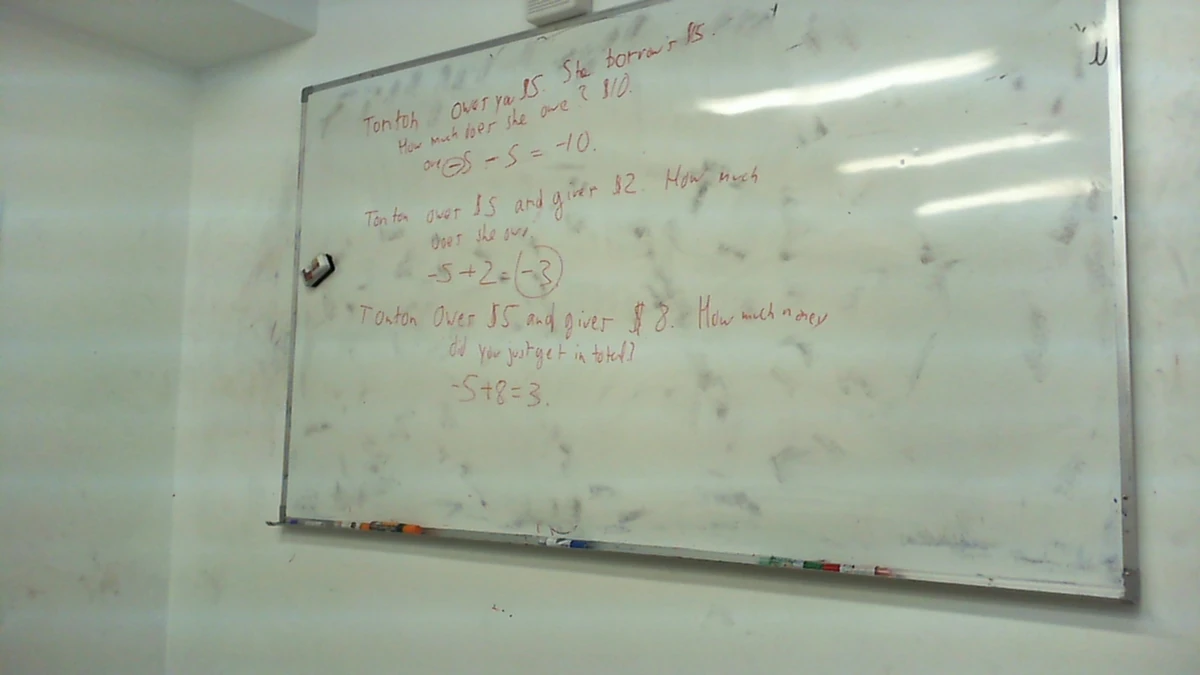 Tonton owes you $5. She borrows $5.
How much does she owe? $10.
owe -5 - 5 = -10.
Tonton owes $5 and gives $2. How much
does she owe.
-5+2=-3
Tonton Owes $5 and gives $8. How much money
did you just get in total?
-5+8=3.